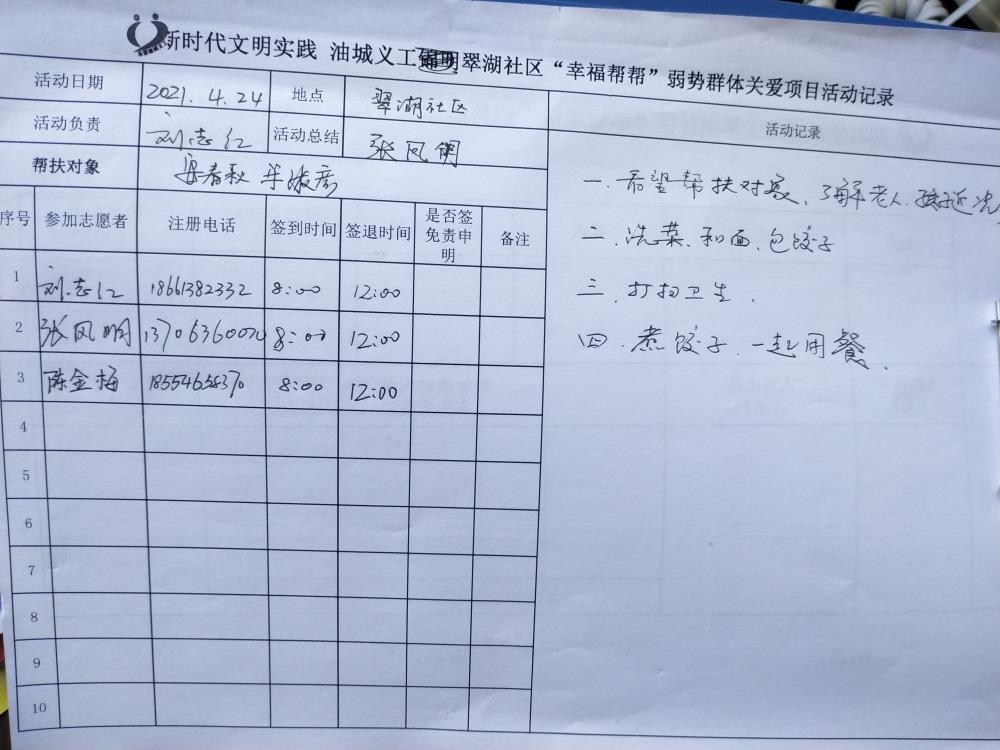 新时代文明实践 油城义工翠湖社区“幸福帮帮”弱势群体关爱项目活动记录
活动日期 2021.4.24 地点 翠湖社区
活动负责 刘志红 活动总结 张凤明
帮扶对象
序号 参加志愿者 注册电话 签到时间 签退时间 是否签免责申明 备注
1 刘志红 18661382332 8:00 12:00
2 张凤明 8:00 12:00
3 陈金梅 18554658370 8:00 12:00
4
5
6
7
8
9
10
活动记录
一.看望帮扶对象、了解老人.孩子近况
二、洗菜、和面、包饺子
三、打扫卫生.
四.煮饺子.一起用餐.